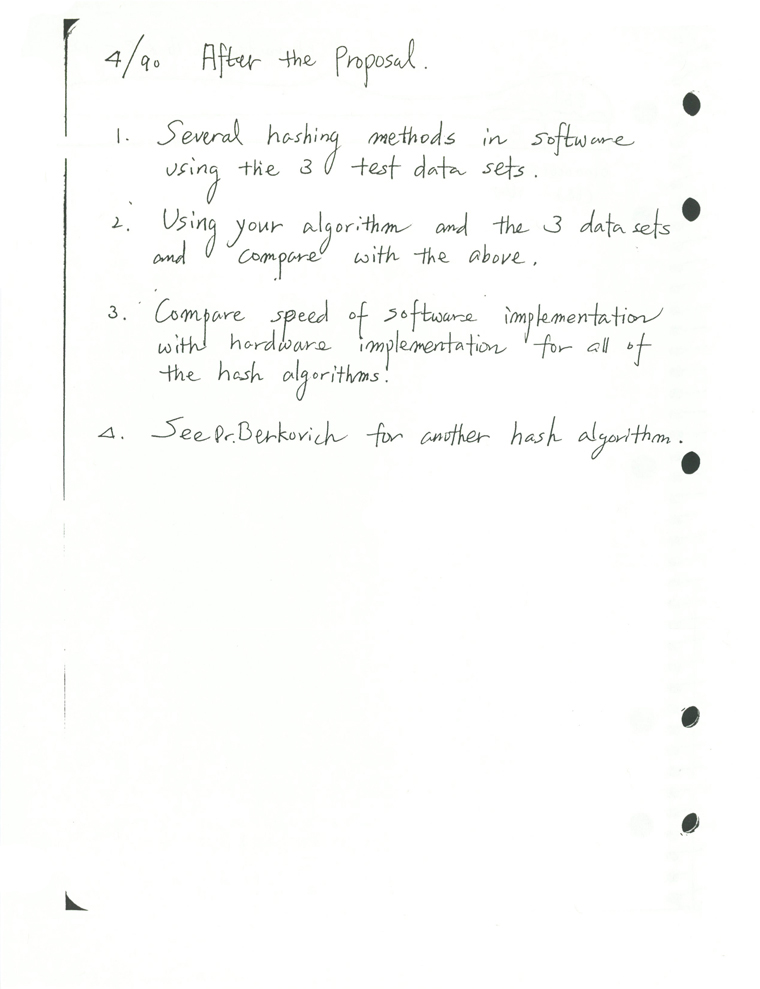 4/90 After the Proposal.
1. Several hashing methods in software
using the 3 test data sets.
2. Using your algorithm and the 3 data sets
and compare with the above.
3. Compare speed of software implementation
with hardware implementation for all of
the hash algorithms.
4. See Dr. Berkovich for another hash algorithm.